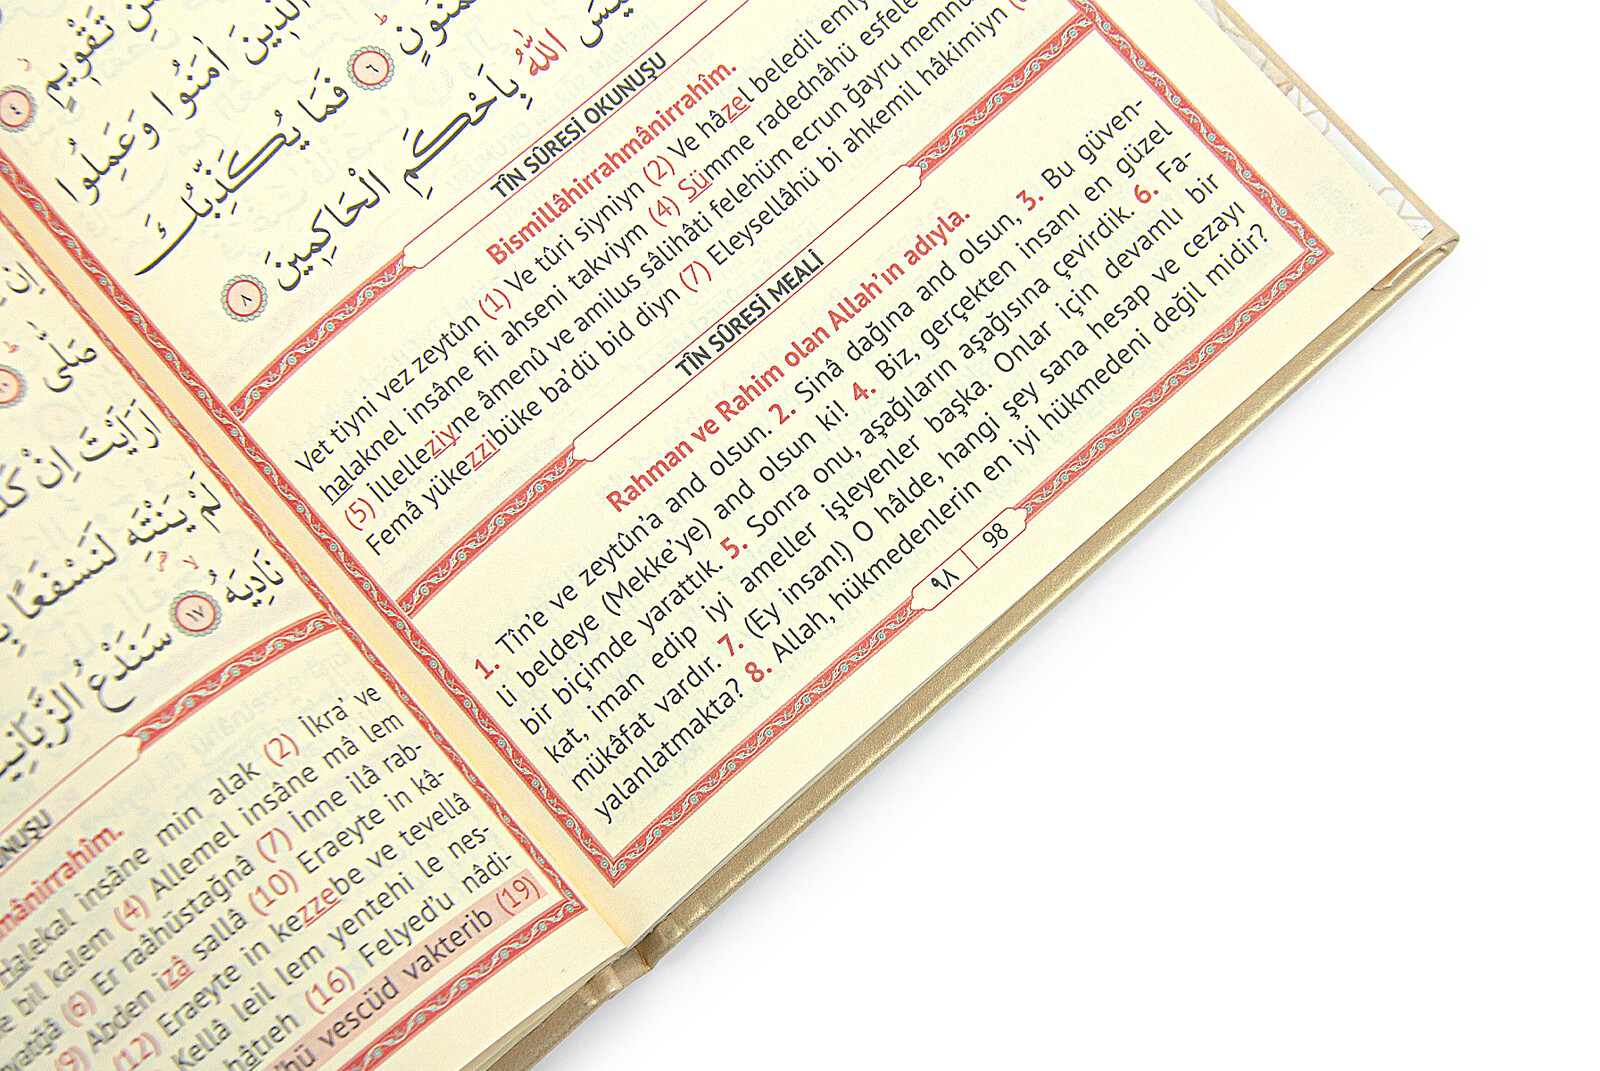 تَقْوِيمٍ
٤
الَّذِينَ اٰمَنُوا وَعَمِلُوا
٦ فَمَا يُكَذِّبُكَ
اللّٰهُ بِاَحْكَمِ الْحَاكِمِينَ ٨
TÎN SÛRESİ OKUNUŞU
Bismillâhirrahmânirrahîm.
Vet tiyni vez zeytûn (1) Ve tûri siyniyn (2) Ve hâzel beledil
halaknel insâne fii ahseni takviym (4) Sümme radednâhü esfele
(5) İllelleziyne âmenû ve amilus sâlihâti felehüm ecrun ğayru
Femâ yükezzibüke ba'dü bid diyn (7) Eleysellâhü bi ahkemil hâkimiyn
TÎN SÛRESİ MEALİ
Rahman ve Rahim olan Allah'ın adıyla.
1. Tîn'e ve zeytûn'a and olsun. 2. Sinâ dağına and olsun, 3. Bu güven-
li beldeye (Mekke'ye) and olsun ki! 4. Biz, gerçekten insanı en güzel
bir biçimde yarattık. 5. Sonra onu, aşağıların aşağısına çevirdik. 6. Fa-
kat, iman edip iyi ameller işleyenler başka. Onlar için devamlı bir
mükâfat vardır. 7. (Ey insan!) O hâlde, hangi şey sana hesap ve cezayı
yalanlatmakta? 8. Allah, hükmedenlerin en iyi hükmedeni değil midir?
٩٨ 98
صَلّٰى
اَرَاَيْتَ اِنْ
لَمْ يَنْتَهِ لَنَسْفَعًا
نَادِيَهُ ١٧ سَنَدْعُ الزَّبَانِيَةَ
Halekal insâne min alak (2) İkra' ve
bil kalem (4) Allemel insâne mâ lem
(6) Er raâhüstağnâ (7) İnne ilâ rab-
(9) Abden izâ sallâ (10) Eraeyte in kâ-
(12) Eraeyte in kezzebe ve tevellâ
Kellâ leil lem yentehi le nes-
hâtıeh (16) Felyed'u nâdi-
vescüd vakterib (19)